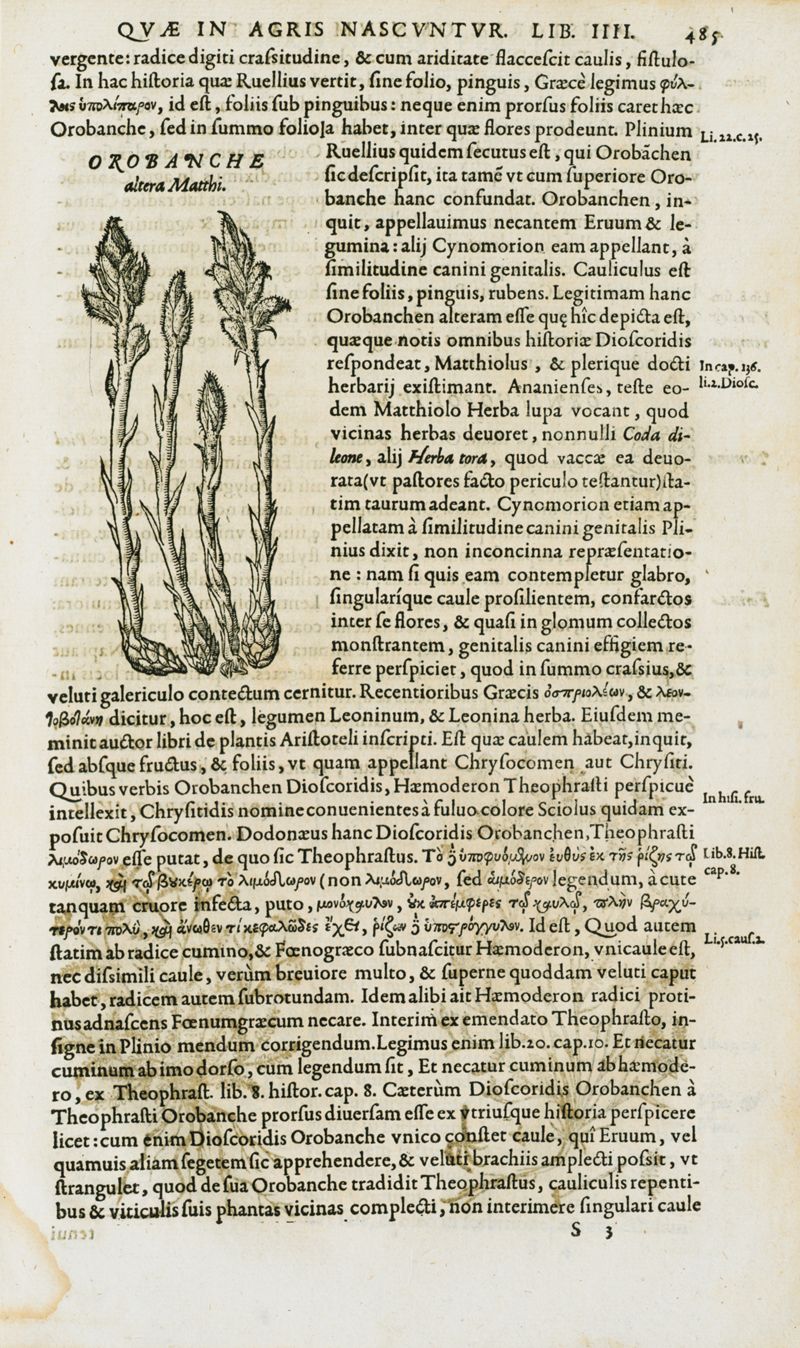 QVÆ IN AGRIS NASCVNTVR. LIB. IIII. 485
vergente: radice digiti crassitudine, & cum ariditate flaccescit caulis, fistulo-
sa. In hac historia quæ Ruellius vertit, sine folio, pinguis, Græcè legimus φύλ-
λοις ὑπολίπαρον, id est, foliis sub pinguibus: neque enim prorsus foliis caret hæc
Orobanche, sed in summo foliola habet, inter quæ flores prodeunt. Plinium
Li.22.c.25.
OROBANCHE
altera Matthi.
Ruellius quidem secutus est, qui Orobāchen
sic descripsit, ita tamē vt cum superiore Oro-
banche hanc confundat. Orobanchen, in-
quit, appellauimus necantem Eruum & le-
gumina: alij Cynomorion eam appellant, à
similitudine canini genitalis. Cauliculus est
sine foliis, pinguis, rubens. Legitimam hanc
Orobanchen alteram esse quę hîc depicta est,
quæque notis omnibus historiæ Dioscoridis
respondeat, Matthiolus, & plerique docti
In cap. 136.
li.2.Diosc.
herbarij existimant. Ananienses, teste eo-
dem Matthiolo Herba lupa vocant, quod
vicinas herbas deuoret, nonnulli Coda di-
leone, alij Herba tora, quod vaccæ ea deuo-
rata (vt pastores facto periculo testantur) sta-
tim taurum adeant. Cynomorion etiam ap-
pellatam à similitudine canini genitalis Pli-
nius dixit, non inconcinna repræsentatio-
ne: nam si quis eam contempletur glabro,
singularíque caule prosilientem, confarctos
inter se flores, & quasi in glomum collectos
monstrantem, genitalis canini effigiem re-
ferre perspiciet, quod in summo crassius, &
veluti galericulo contectum cernitur. Recentioribus Græcis ὀσπριολέων, & λεον-
τοβοτάνη dicitur, hoc est, legumen Leoninum, & Leonina herba. Eiusdem me-
minit auctor libri de plantis Aristoteli inscripti. Est quæ caulem habeat, inquit,
sed absque fructus, & foliis, vt quam appellant Chrysocomen aut Chrysiti.
Quibus verbis Orobanchen Dioscoridis, Hæmoderon Theophrasti perspicuè
In hist. fru.
intellexit, Chrysitidis nomine conuenientes à fuluo colore Sciolus quidam ex-
posuit Chrysocomen. Dodonæus hanc Dioscoridis Orobanchen, Theophrasti
λιμόδωρον esse putat, de quo sic Theophrastus. Τὸ ὑποφυόμενον ἐυθὺς ἐκ τῆς ῥίζης τῷ
Lib.8. Hist.
cap.8.
κυμίνῳ, καὶ τῷ βουκέρῳ τὸ λιμόδωρον (non λιμόδωρον, sed αἱμόδερον legendum, à cute
tanquam cruore infecta, puto, μονόκαυλον, οὐκ ἀπέμφερες τῷ καυλῷ, πλὴν βραχύ-
τερόν τι πολύ, καὶ ἄνωθεν τί κεφαλῶδες ἔχει, ῥίζαν ὑποστρόγγυλον. Id est, Quod autem
Li.5.caus.2.
statim ab radice cumino, & Fœnogræco subnascitur Hæmoderon, vnicaule est,
nec dissimili caule, verùm breuiore multo, & superne quoddam veluti caput
habet, radicem autem subrotundam. Idem alibi ait Hæmoderon radici proti-
nus adnascens Fœnumgræcum necare. Interim ex emendato Theophrasto, in-
signe in Plinio mendum corrigendum. Legimus enim lib.20. cap.10. Et necatur
cuminum ab imo dorso, cum legendum sit, Et necatur cuminum ab hæmode-
ro, ex Theophrast. lib. 8. histor. cap. 8. Cæterùm Dioscoridis Orobanchen à
Theophrasti Orobanche prorsus diuersam esse ex vtriusque historia perspicere
licet: cum enim Dioscoridis Orobanche vnico constet caule, qui Eruum, vel
quamuis aliam segetem sic apprehendere, & veluti brachiis amplecti possit, vt
strangulet, quod de sua Orobanche tradidit Theophrastus, cauliculis repenti-
bus & viticulis suis phantas vicinas complecti, non interimere singulari caule
S 3